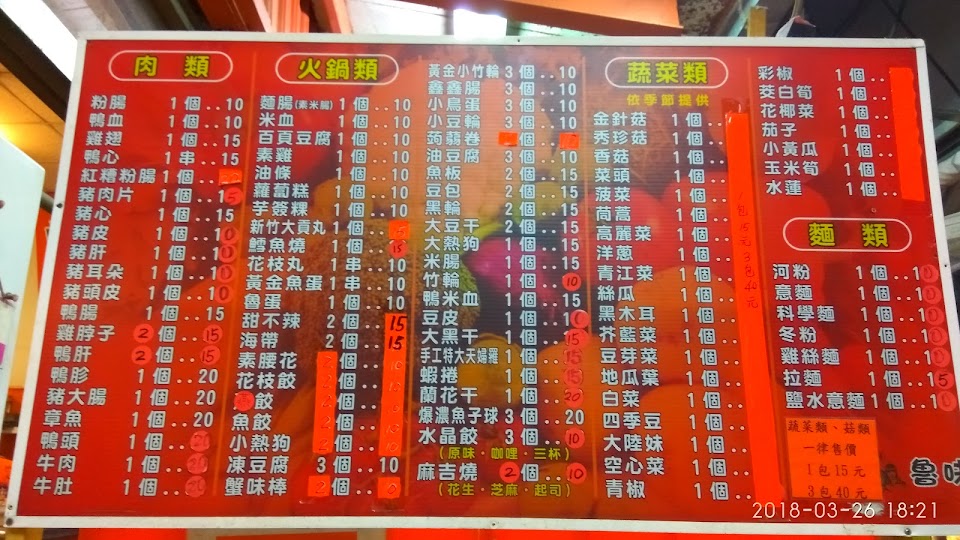 肉類
粉腸 1個..10
鴨血 1個..10
雞翅 1個..15
鴨心 1串..15
紅糟粉腸 1個
豬肉片 1個..
豬心 1個..15
豬皮 1個..
豬肝 1個..
豬耳朵 1個..
豬頭皮 1個..
鴨腸 1個..15
雞脖子 2個..15
鴨肝 2個..15
鴨胗 1個..20
豬大腸 1個..20
章魚 1個..20
鴨頭 1個..
牛肉 1個..
牛肚 1個..
火鍋類
麵腸(素米腸) 1個..10
米血 1個..10
百頁豆腐 1個..10
素雞 1個..10
油條 1個..10
蘿蔔糕 1個..10
芋簽粿 1個..10
新竹大貢丸 1個..
鱈魚燒 1個..15
花枝丸 1串..10
黃金魚蛋 1串..10
魯蛋 1個..10
甜不辣 2個..15
海帶 2個..15
素腰花
花枝餃
餃
魚餃
小熱狗
凍豆腐 3個 10
蟹味棒
黃金小竹輪 3個..10
鑫鑫腸 3個..10
小鳥蛋 3個..10
小豆輪 3個..10
蒟蒻卷 個..
油豆腐 3個..10
魚板 2個..15
豆包 2個..15
黑輪 2個..15
大豆干 2個..15
大熱狗 1個..15
米腸 1個..15
竹輪 1個..10
鴨米血 1個..15
豆皮 1個..
大黑干 1個..15
手工特大天婦羅 1個..15
蝦捲 1個..15
蘭花干 1個..20
爆濃魚子球 3個..20
水晶餃 3個..10
(原味·咖哩·三杯)
麻吉燒 2個..10
(花生·芝麻·起司)
蔬菜類
依季節提供
金針菇 1個..
秀珍菇 1個..
香菇 1個..
菜頭 1個..
菠菜 1個..
茼蒿 1個..
高麗菜 1個..
洋蔥 1個..
青江菜 1個..
絲瓜 1個..
黑木耳 1個..
芥藍菜 1個..
豆芽菜 1個..
地瓜葉 1個..
白菜 1個..
四季豆 1個..
大陸妹 1個..
空心菜 1個..
青椒 1個..
1包15元3包40元
彩椒 1個..
茭白筍 1個..
花椰菜 1個..
茄子 1個..
小黃瓜 1個..
玉米筍 1個..
水蓮 1個..
麵類
河粉 1個..10
意麵 1個..10
科學麵 1個..10
冬粉 1個..10
雞絲麵 1個..10
拉麵 1個..15
鹽水意麵 1個..10
蔬菜類、菇類
一律售價
1包15元
3包40元
魯味
2018-03-26 18:21